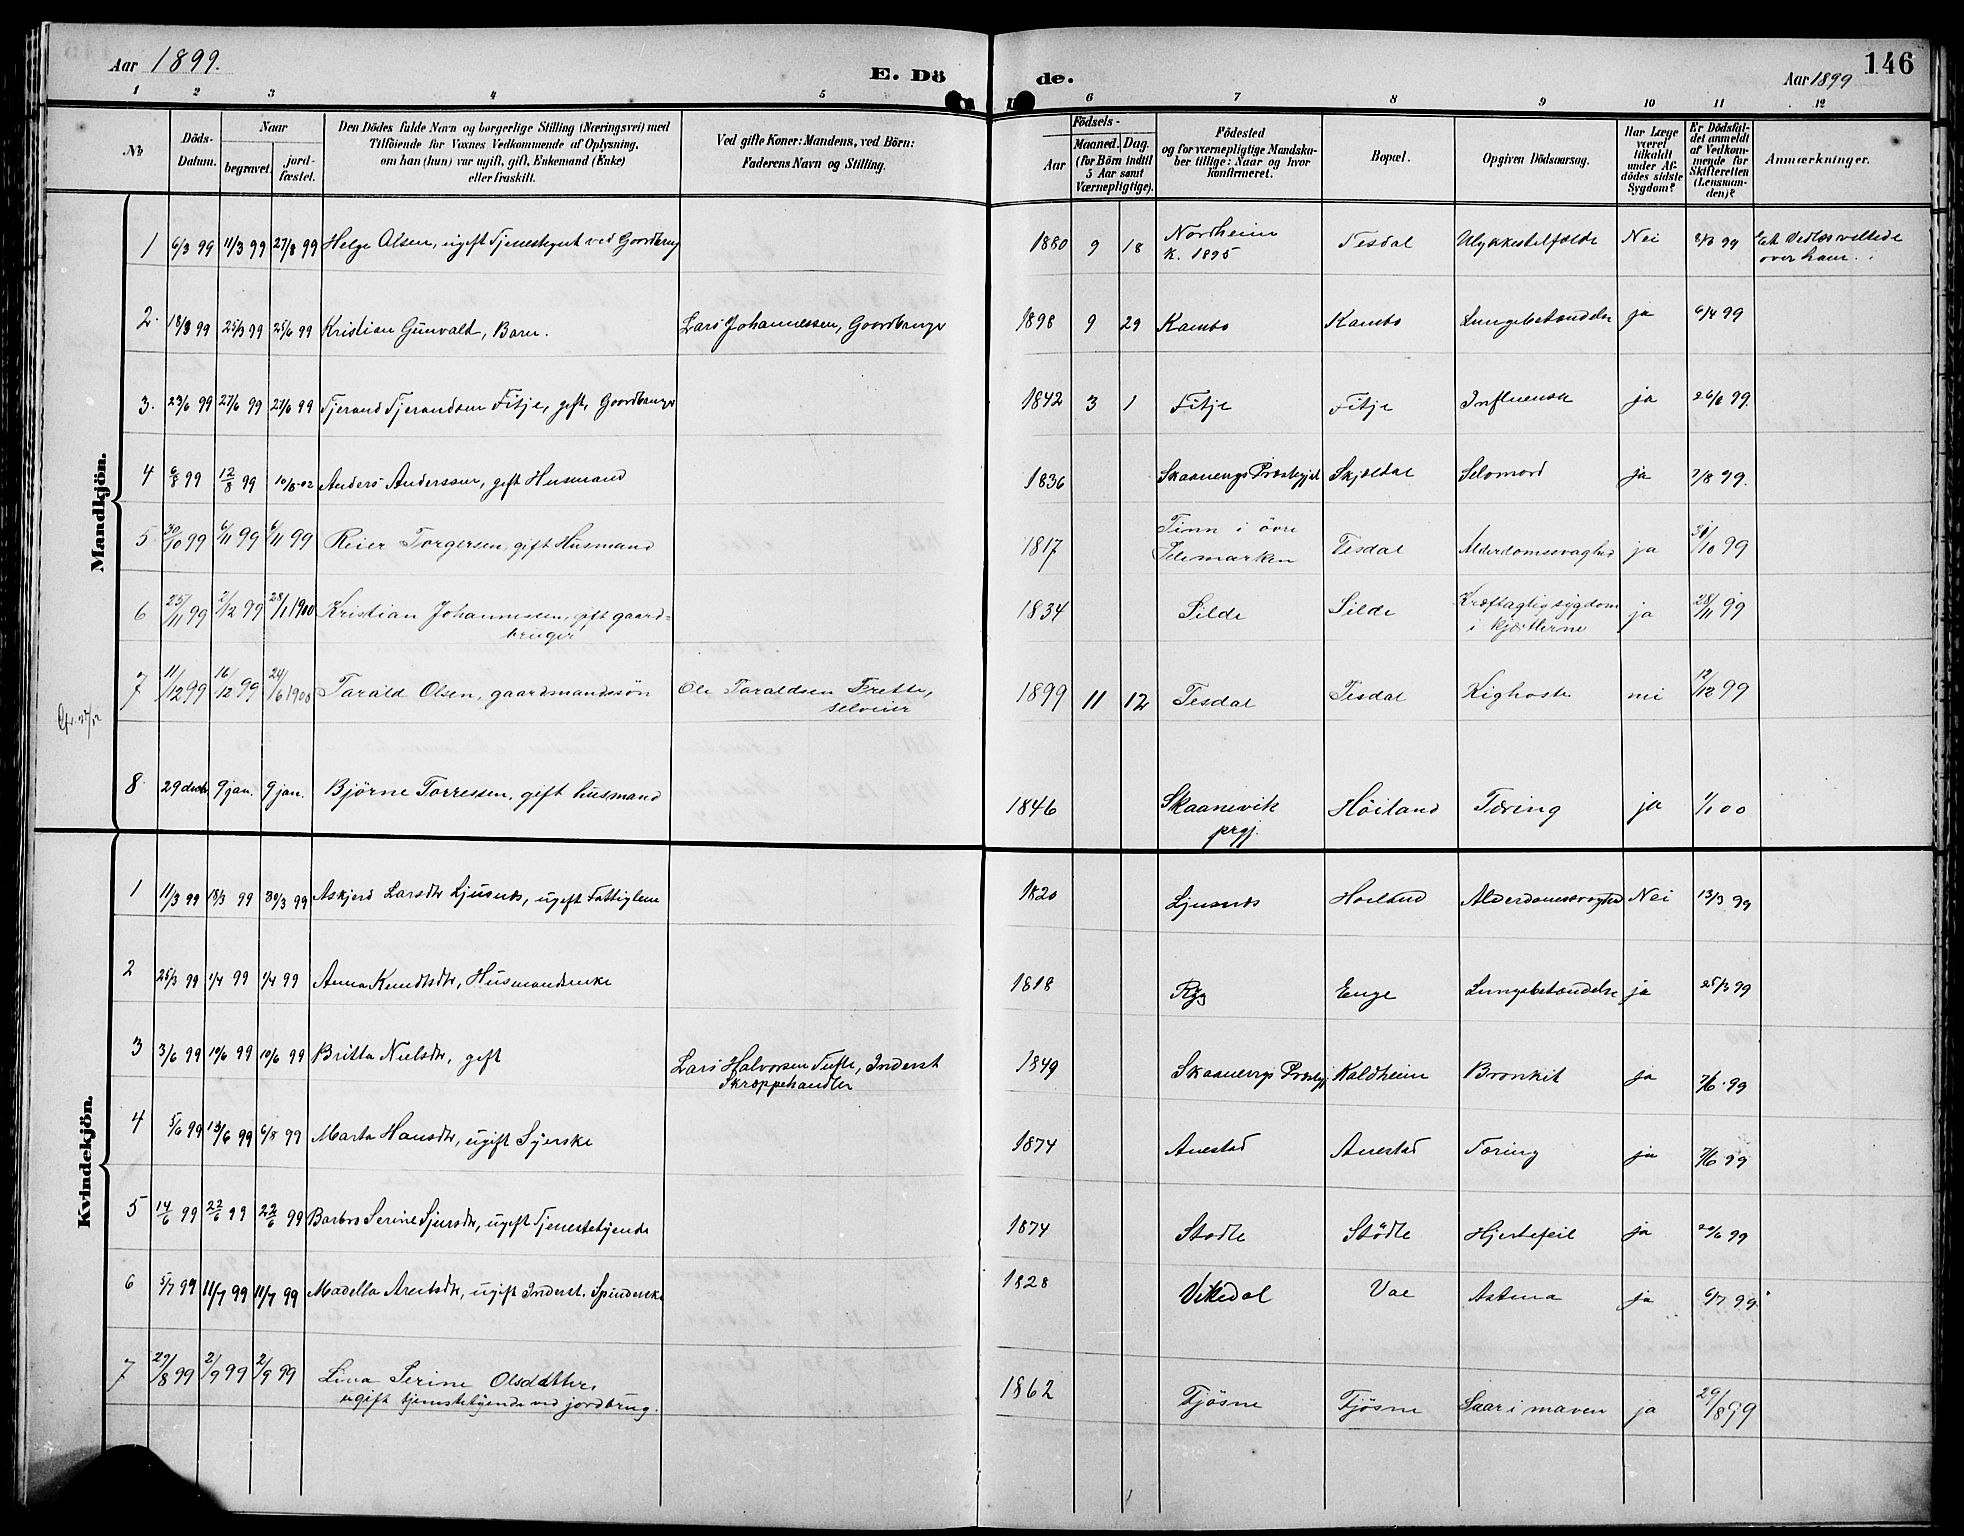 Aar 1899.
E. Döde.
Aar 1899
146
1 2 3 4 5 6 7 8 9 10 11 12
No
Döds-Datum.
Naar
begravet.
jordfæstet.
Den Dödes fulde Navn og borgerlige Stilling (Næringsvei) med
Tilföiende for Voxnes Vedkommende af Oplysning,
om han (hun) var ugift, gift, Enkemand (Enke)
eller fraskilt.
Ved gifte Koner: Mandens, ved Börn:
Faderens Navn og Stilling.
Födsels-
Aar
Maaned. Dag.
(for Börn indtil
5 Aar samt
Værnepligtige).
Födested
og for værnepligtige Mandskaber tillige: Naar og hvor
konfirmeret.
Bopæl.
Opgiven Dödsaarsag.
Har Læge
været
tilkaldt
under Afdödes sidste
Sygdom?
Er Dödsfaldet anmeldt
af Vedkommende for
Skifteretten
(Lensmanden)?
Anmærkninger.
Mandkjön.
1 6/3 99 11/3 99 27/8 99 Helge Olsen, ugift Tjenestegut ved Goordbrug 1880 9 18 Nordheim k. 1895 Tesdal Ulykkestilfælde Nei 8/3 99 Et Vedlæs veltede over ham.
2. 18/3 99 25/3 99 25/6 99 Kristian Gunvald, Barn. Lars Johannessen, Goordbruger 1898 9 29 Kambo Kambo Lungebetændelse ja 6/4 99
3. 23/6 99 27/6 99 27/6 99 Tjerand Tjerandsen Fitje, gift, Goordbruger 1842 3 1 Fitje Fitje Influensa ja 26/6 99.
4 6/8 99 12/8 99 10/8-02 Anders Anderssen, gift Husmand 1836 Skaanevigs Præstegjel Skjoldal Selvmord ja 7/8 99.
5 30/10 99 6/11 99 6/11 99 Reier Torgersen, gift Husmand 1817 Tinn i övre Telemarken Tesdal Alderdomssvaghed ja 31/10 99
6 25/11 99 2/12 99 28/1 1900 Kristian Johannessen, gift gaardbruger 1834 Silde Silde Kræftagtig sygdom i kjærtlerne ja 28/11 99
7 11/12 99 16/12 99 24/6 1900 Tarald Olsen, gaardmandssön Ole Taraldsen Frette, selveier 1899 11 12 Tesdal Tesdal Kighoste nei 12/12 99
8 29 decb 9 jan. 9 jan. Björne Torressen, gift husmand 1846 Skaanevik prgj. Höiland Tæring ja 1/1 00
Kvindekjön.
1 11/3 99 18/3 99 30/3 99 Askjerd Larsdtr Ljusnes, ugift Fattiglem 1820 Ljusnes Hoiland Alderdomssvaghed Nei 13/3 99
2 25/3 99 1/4 99 1/4 99 Anna Knudtsdtr, Husmandsenke 1818 Ryg Enge Lungebetændelse ja 25/3 99
3 3/6 99 10/6 99 10/6 99 Britta Nielsdtr, gift Lars Halvorsen Tufte, Inderst Skræppehandler 1849 Skaanevigs Præstegj Kaldheim Bronkit ja 7/6 99
4 5/6 99 13/6 99 6/8 99 Marta Hansdtr, ugift Syerske 1874 Anestad Anestad Tæring ja 7/6 99
5 14/6 99 22/6 99 22/6 99 Barbro Serine Sjursdtr, ugift Tjenestetyende 1874 Stodle Stödle Hjertefeil ja 20/6 99
6 5/7 99 11/7 99 11/7 99 Madella Arentsdtr, ugift Inderst. Spinderske 1828 Vikedal Vae Astma ja 6/7 99
7 29/8 99 2/9 99 2/9 99 Lina Serine Olsdatter, ugift tjenstetyende ved jordbrug. 1862 Tjösne Tjösne Saar i maven ja 29/8 99